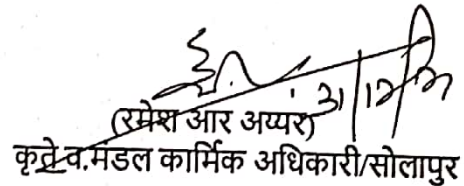 (रमेश आर अय्यर)
कृते व.मंडल कार्मिक अधिकारी/सोलापुर